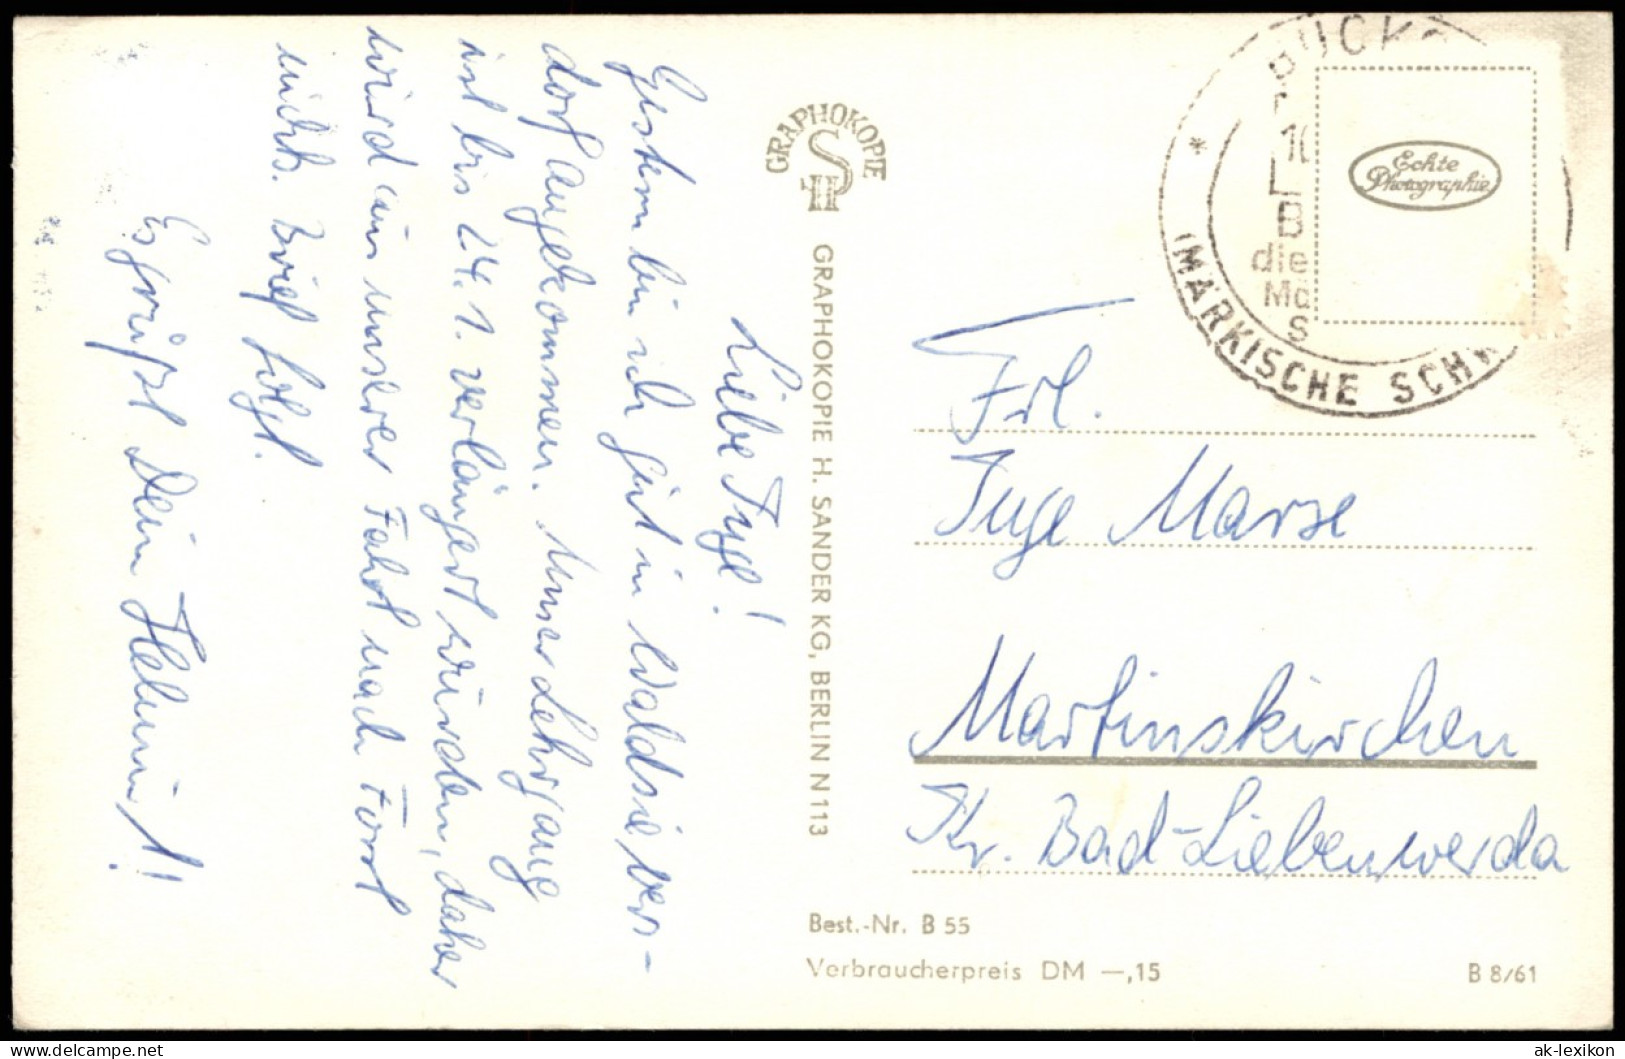 Liebe Inge!
Gestern bin ich gut in Waldsievers-
dorf angekommen. Unser Lehrgang
ist bis 24.1. verlängert worden, daher
wird aus unserer Fahrt nach Forst
nichts. Brief folgt.
Es grüßt Dein Helmut!
GRAPHOKOPIE
GRAPHOKOPIE H. SANDER KG, BERLIN N 113
BUCKO
*
10
L
B
die
Mä
S
(MÄRKISCHE SCHW
Echte
Photographie
Frl.
Inge Marse
Martinskirchen
Kr. Bad-Liebenwerda
Best.-Nr. B 55
Verbraucherpreis DM —,15
B 8/61
ak-lexikon
www.delcampe.net